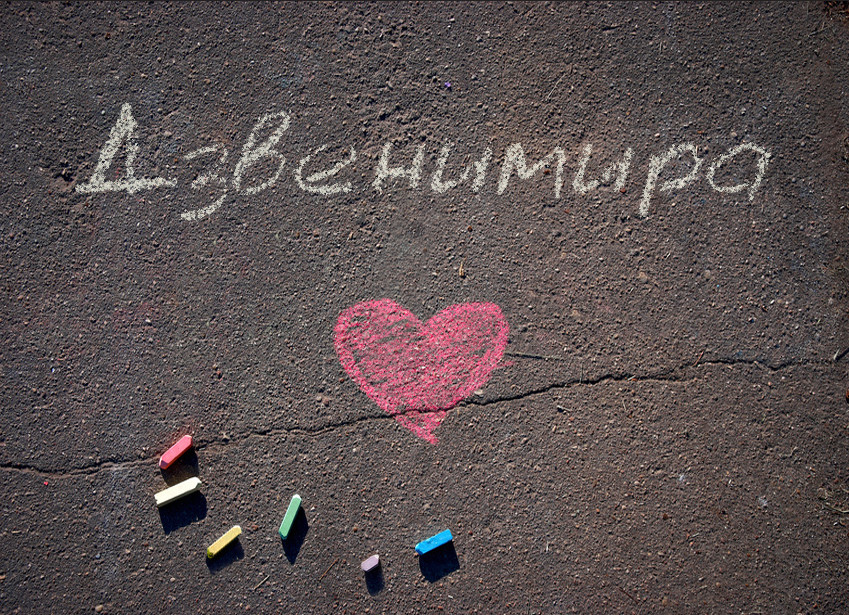 Дзвенимира